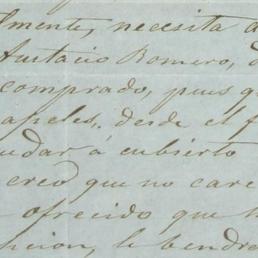 lmente, necesita a
Eustacio Romero, d
comprado, pues q
apeles, desde el f
udar á cubierto
creo que no care
ofrecido que h
hicion, le bendre